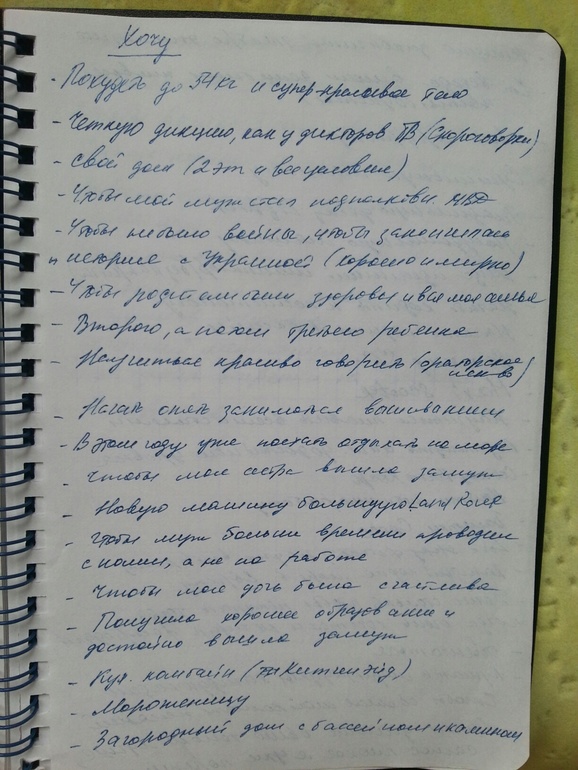 Хочу
- Похудеть до 54 кг и супер-красивое тело
- Четкую дикцию, как у дикторов ТВ (скороговорки)
- Свой дом (2 эт и все условия)
- Чтобы мой муж стал подполковн. МВД
- Чтобы не было войны, чтобы закончилась
и история с Украиной (хорошо и мирно)
- Чтобы родители были здоровы и вся моя семья
- Второго, а потом третьего ребенка
- Научиться красиво говорить (ораторское
иск-во)
- Начать опять заниматься вышиванием
- В этом году уже поехать отдыхать на море
- Чтобы моя сестра вышла замуж
- Новую машину большую Land Rover
- Чтобы муж больше времени проводил
с нами, а не на работе
- Чтобы моя дочь была счастлива
- Получила хорошее образование и
достойно вышла замуж
- Кух. комбайн (КитченЭйд)
- Мороженицу
- Загородный дом с бассейном и камином